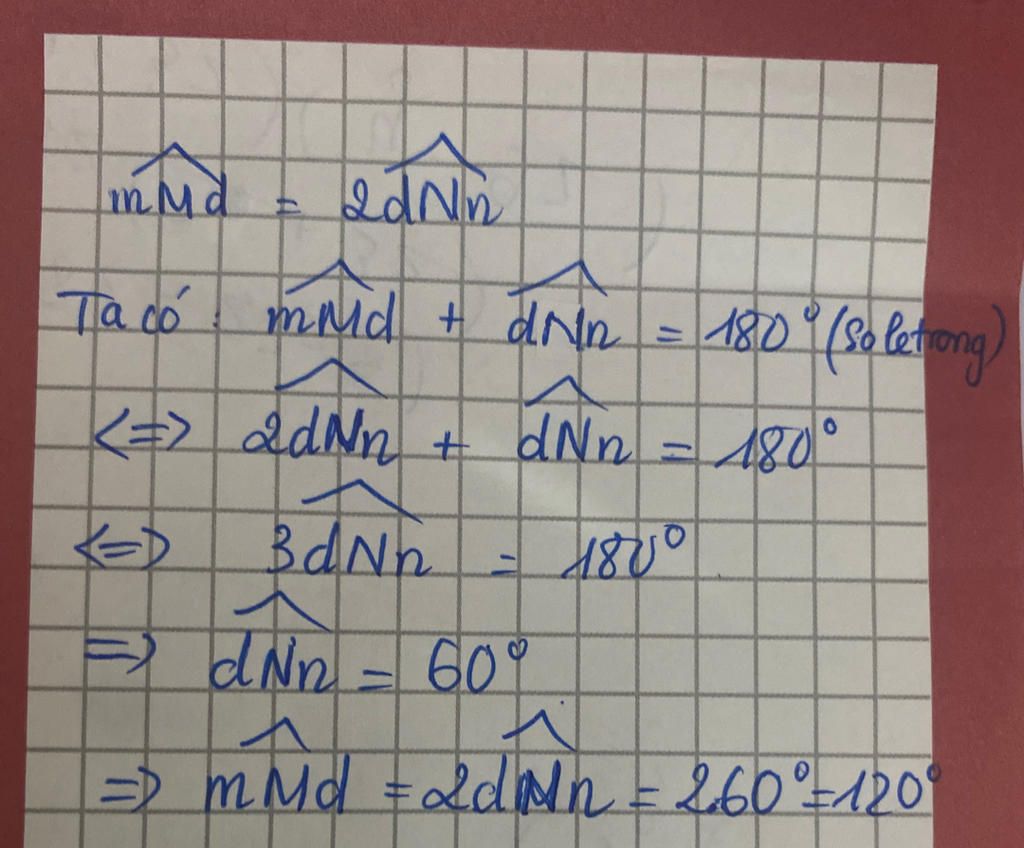 mMd = 2dNn
Ta có: mMd + dNn = 180° (so le trong)
<=> 2dNn + dNn = 180°
<=> 3dNn = 180°
=> dNn = 60°
=> mMd = 2dNn = 2.60° = 120°